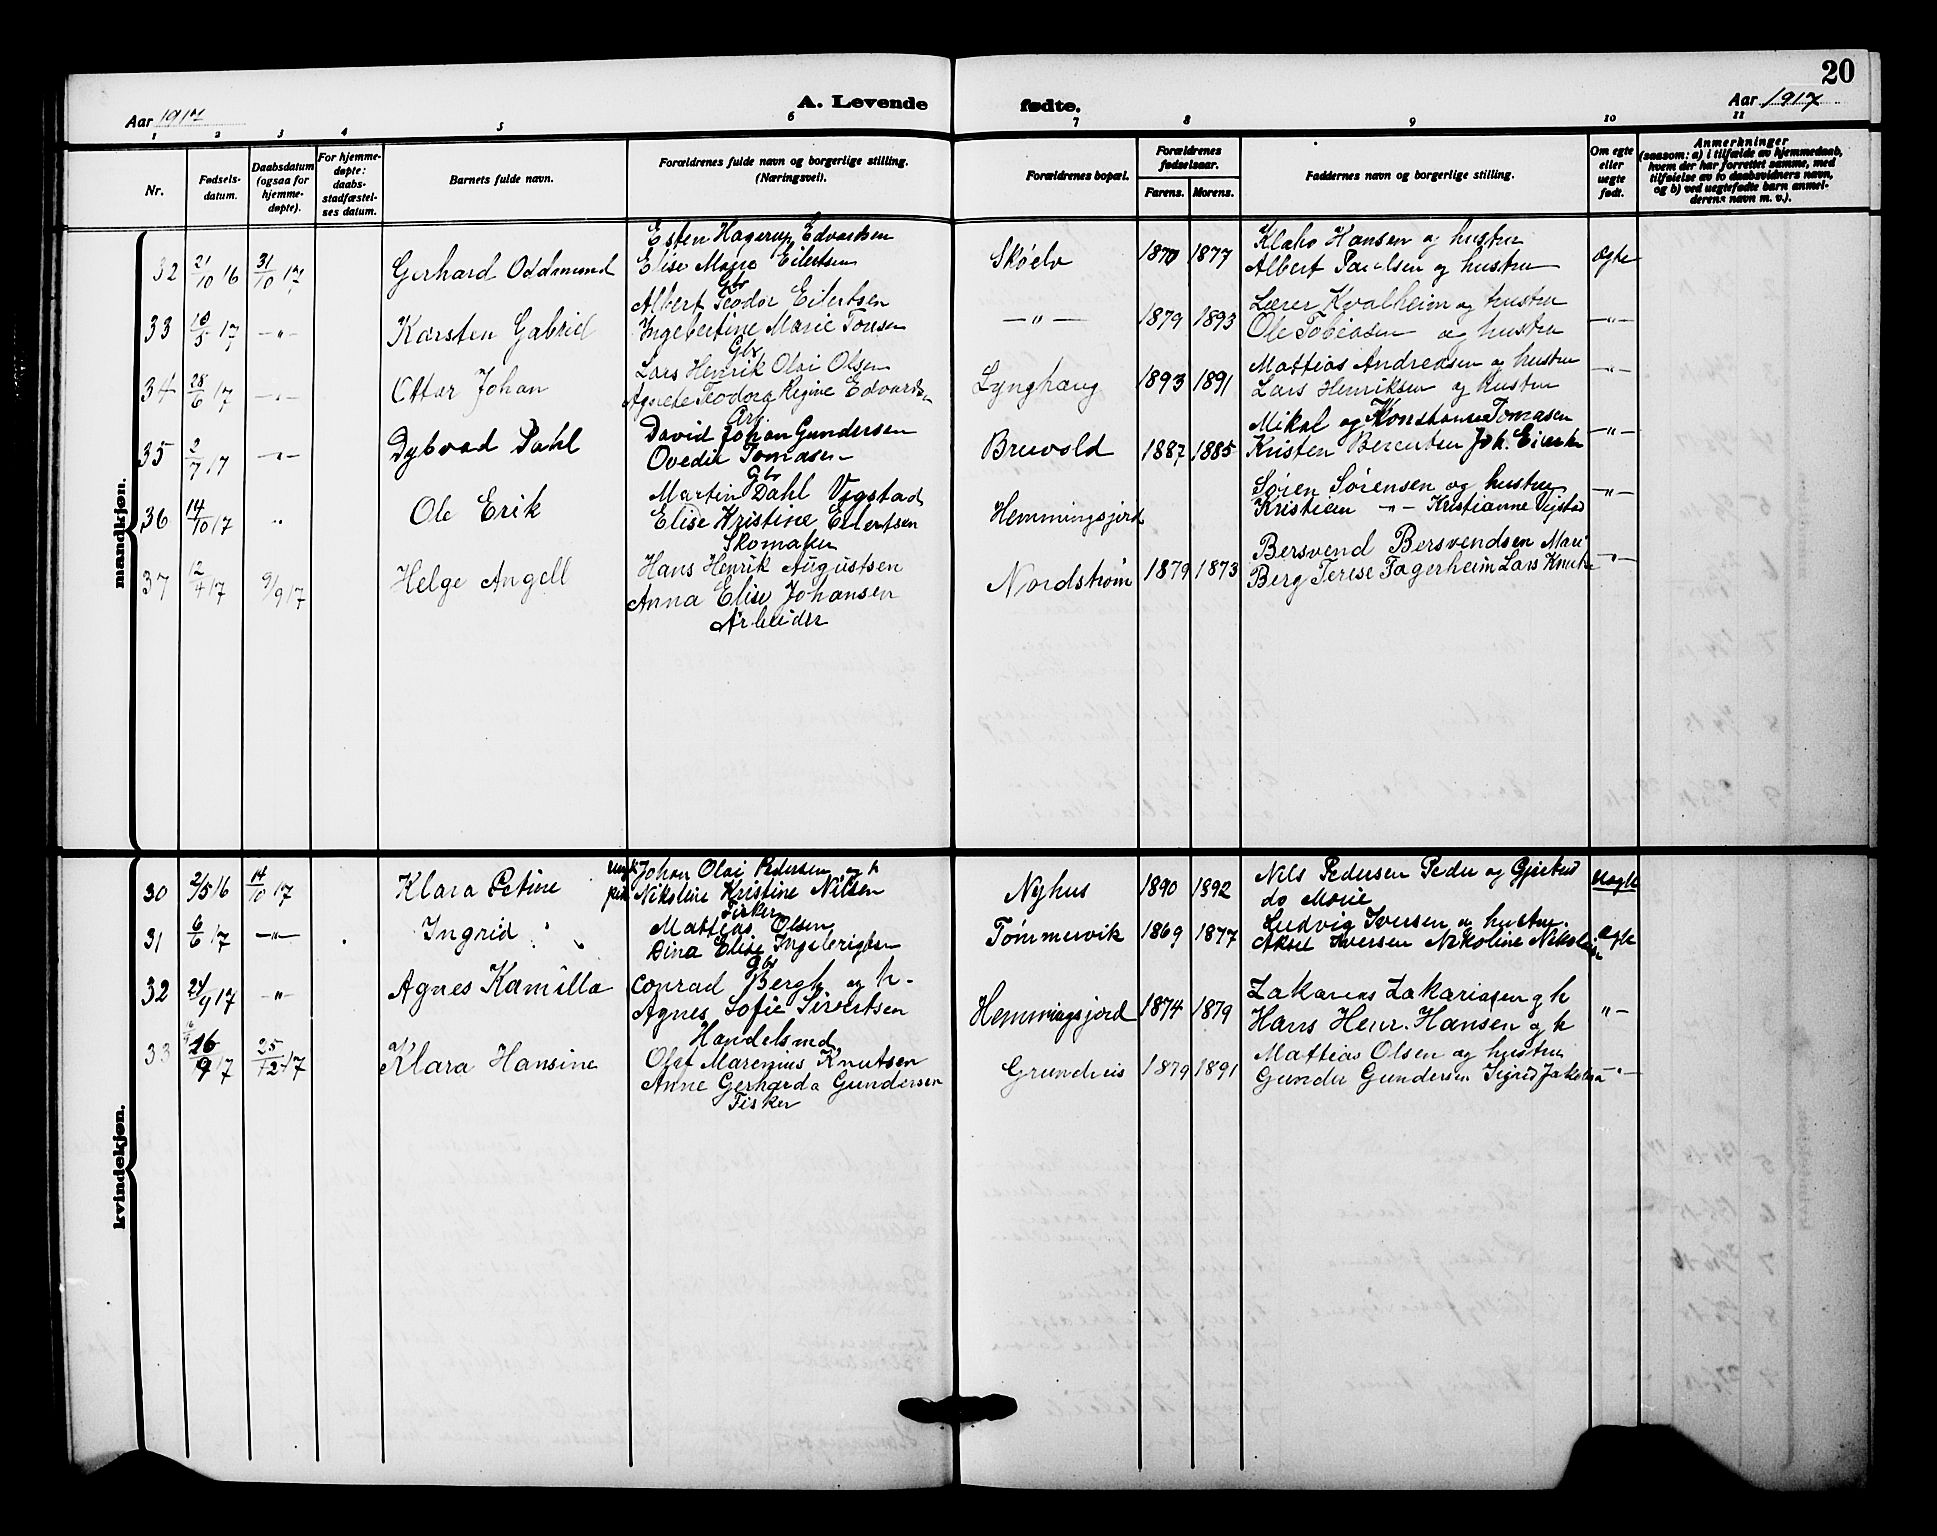 20
Aar 1917 A. Levende fødte. Aar 1917
1 2 3 4 5 6 7 8 9 10 11
Nr. Fødsels-datum. Daabsdatum (ogsaa for hjemme-døpte). For hjemme-døpte: daabs-stadfæstel-ses datum. Barnets fulde navn. Forældrenes fulde navn og borgerlige stilling. (Næringsvei). Forældrenes bopæl. Forældrenes fødselsaar. Farens. Morens. Faddernes navn og borgerlige stilling. Om egte eller uegte født. Anmerkninger (saasom: a) i tilfælde av hjemmedaab, hvem der har forrettet samme, med tilføielse av to daabsvidners navn, og b) ved uegtefødte barn anmel-derens navn m. v.).
mandkjøn.
Esten Hagerup Edvardsen
32 21/10 16 31/10 17 Gerhard Oddmund Elise Marie Eilertsen Skøelv 1870 1877 Klaho Hansen og hustru
Gbr Albert Paulsen og hustru Egte
Albert Teodor Eilertsen
33 10/5 17 -"- Karsten Gabriel Ingebertine Marie Tonsen -"- 1879 1893 Lærer Kvalheim og hustru
Gbr Ole Tobiasen og hustru -"-
Lars Henrik Olai Olsen
34 28/6 17 -"- Ottar Johan Agnete Teodora Regine Edvardsen Lynghaug 1893 1891 Mattias Andreasen og hustru
Arb Lars Henriksen og hustru -"-
David Johan Gundersen
35 2/7 17 -"- Dybvad Dahl Ovedie Tomasen Bruvold 1887 1885 Mikal og Konstanse Tomasen
Gbr Kristen Berentsen Joh. -"-
Martin Dahl Vigstad
36 14/10 17 " Ole Erik Elise Kristine Eilertsen Hemmingsjord Søren Sørensen og hustru
Skomaker Kristian -"- Kristianne Vigstad -"-
Hans Henrik Augustsen
37 12/4 17 9/9 17 Helge Angell Anna Elise Johansen Nordstrøm 1879 1873 Bersvend Bersvendsen Mari
Arbeider Berg Terese Fagerheim Lars -"-
kvindekjøn.
ungk Johan Olai Pedersen og h
30 2/5 16 14/10 17 Klara Petine pike Nikoline Kristine Nilsen Nyhus 1890 1892 Nils Pedersen Peder og Gjertrud
Fisker do Marie Uegte
Mattias Olsen
31 6/6 17 -"- Ingrid Dina Elise Ingebrigtsen Tømmervik 1869 1877 Ludvig Iversen og hustru
Gbr Aksel Iversen Nikoline Egte
32 24/9 17 -"- Agnes Kamilla Conrad Bergh og h. Hemmingsjord 1874 1879 Zakarias Zakariasen g h
Agnes Sofie Sivertsen Hans Henr. Hansen g h "-
Handelsmd
33 16/9 17 25/12 17 Klara Hansine Olaf Marenius Knutsen Grundreis 1879 1891 Mattias Olsen og hustru
Anne Gerharda Gundersen Gunder Gundersen Sigrid -"-
Fisker